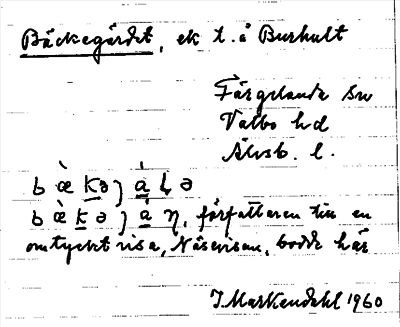 Bäckegärdet, ek t. å Burhult
Färgelanda sn
Valbo hd
Älvsb. l.
författaren till en
omtyckt visa, Näsvisan, bodde här
J Markendahl 1960